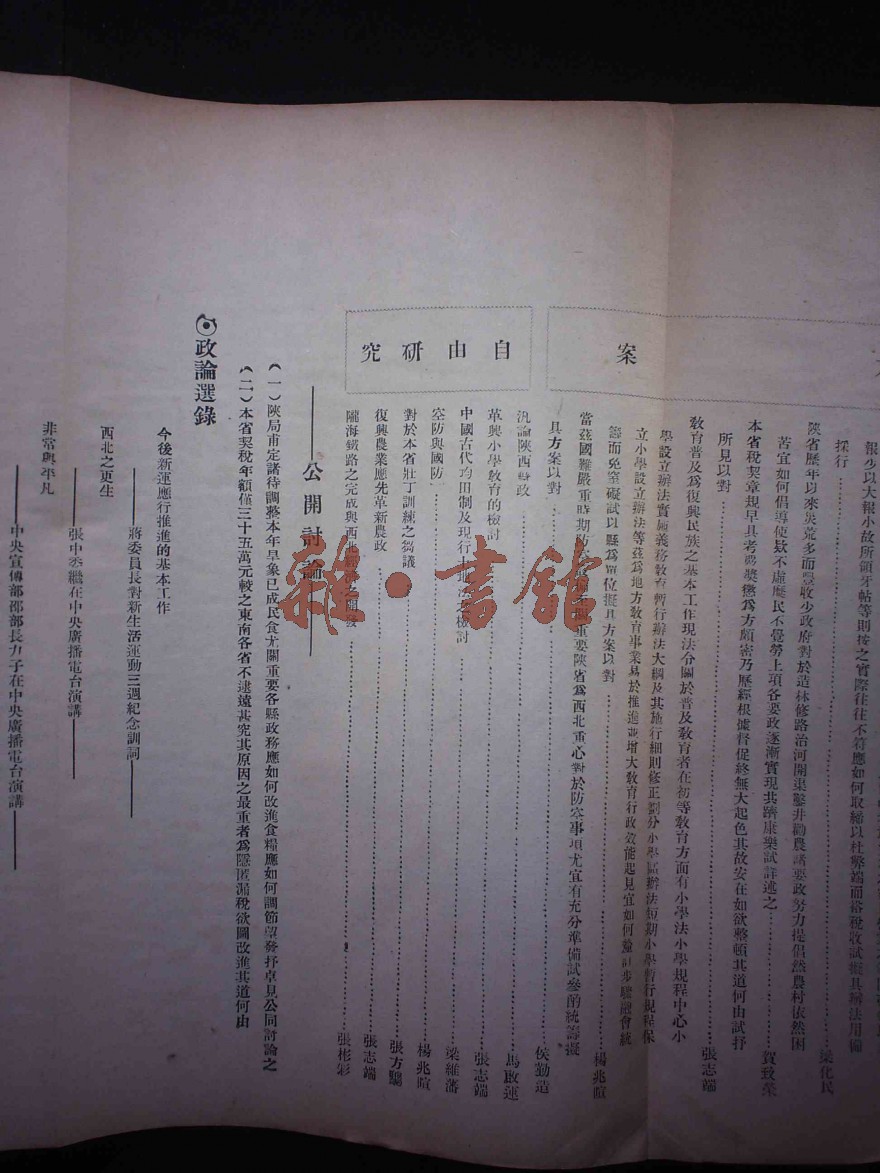 報少以大報小故所領牙帖等則按之實際往往不符應如何取締以杜弊端而裕稅收試擬具辦法用備
採行⋯⋯梁化民
陝省歷年以來災荒多而豐收少政府對於造林修路治河開渠鑿井勸農諸要政努力提倡然農村依然困
苦宜如何倡導使款不虛糜民不覺勞上項各要政逐漸實現共躋康樂試詳述之⋯⋯賀致榮
本省稅契章規早具考覈獎懲為方頗密乃歷經根據督促終無大起色其故安在如欲整頓其道何由試抒
所見以對⋯⋯張志端
教育普及為復興民族之基本工作現法令關於普及教育者在初等教育方面有小學法小學規程中心小
學設立辦法實施義務教育暫行辦法大綱及其施行細則修正劃分小學區辦法短期小學暫行規程保
立小學設立辦法等茲為地方教育事業易於推進並增大教育行政效能起見宜如何釐訂步驟融會統
籌而免窒礙試以縣為單位擬具方案以對⋯⋯楊兆暄
當茲國難嚴重時期防重要陝省為西北重心對於防空事項尤宜有充分準備試參酌統籌擬
具方案以對⋯⋯侯勤造
案
自由研究
汎論陝西縣政⋯⋯馬啟運
革興小學教育的檢討⋯⋯張志端
中國古代均田制及現行土地法之檢討⋯⋯梁維藩
空防與國防⋯⋯楊兆暄
對於本省壯丁訓練之芻議⋯⋯張方驥
復興農業應先革新農政⋯⋯張志端
隴海鐵路之完成與西北經濟之開發⋯⋯張彬彩
——公開討論——
(一)陝局甫定諸待調整本年旱象已成民食尤關重要各縣政務應如何改進食糧應如何調節望發抒卓見公同討論之
(二)本省契稅年額僅三十五萬元較之東南各省不逮遠甚究其原因之最重者為隱匿漏稅欲圖改進其道何由
政論選錄
今後新運應行推進的基本工作
——蔣委員長對新生活運動三週紀念訓詞——
西北之更生
——張中委繼在中央廣播電台演講——
非常與平凡
——中央宣傳部邵部長力子在中央廣播電台演講——
雜·書館